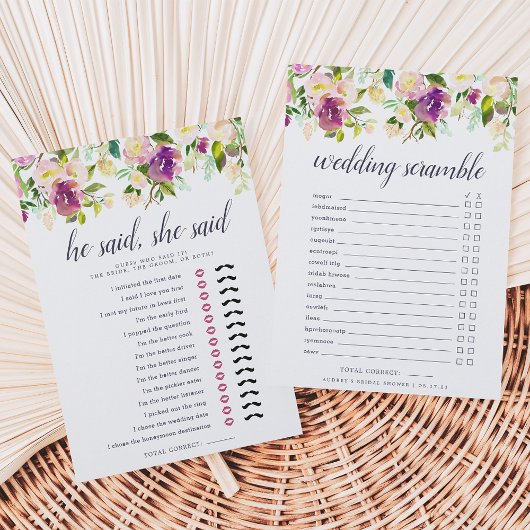 he said, she said
GUESS WHO SAID IT:
THE BRIDE, THE GROOM, OR BOTH?
I initiated the first date
I said I love you first
I met my future in laws first
I'm the early bird
I popped the question
I'm the better cook
I'm the better driver
I'm the better singer
I'm the better dancer
I'm the pickier eater
I'm the better listener
I picked out the ring
I chose the wedding date
I chose the honeymoon destination
TOTAL CORRECT:
wedding scramble
✓ X
mogor
iebdmaisrd
yoonhmeno
rgrtisye
uqeoubt
ecntroepi
cowelf irlg
iridab hrwose
nrsg
eowleft
ileas
ryemnooc
nswv
TOTAL CORRECT:
AUBREY'S BRIDAL SHOWER |